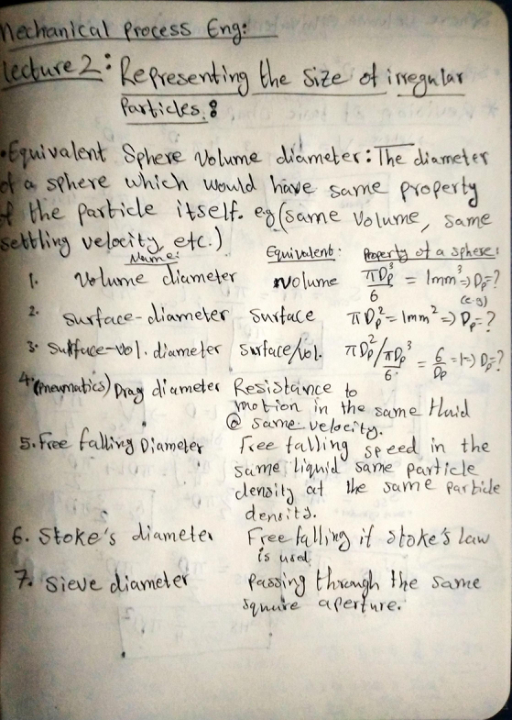 Mechanical Process Eng:
Lecture 2: Representing the Size of irregular
Particles:
• Equivalent Sphere Volume diameter: The diameter
of a sphere which would have same property
of the particle itself. e.g (same Volume, same
settling velocity, etc.)
Name: Equivalent: Property of a sphere:
1. Volume diameter volume πDp³/6 = 1mm³ => Dp=?
(e.g)
2. surface-diameter surface πDp² = 1mm² => Dp=?
3. Surface-vol. diameter surface/vol. πDp²/πDp³/6 = 6/Dp = 1 => Dp=?
4. (pneumatics) Drag diameter Resistance to
motion in the same fluid
@ same velocity.
5. Free falling Diameter free falling speed in the
same liquid same particle
density at the same particle
density.
6. Stoke's diameter Free falling if Stoke's law
is used
7. Sieve diameter Passing through the same
square aperture.